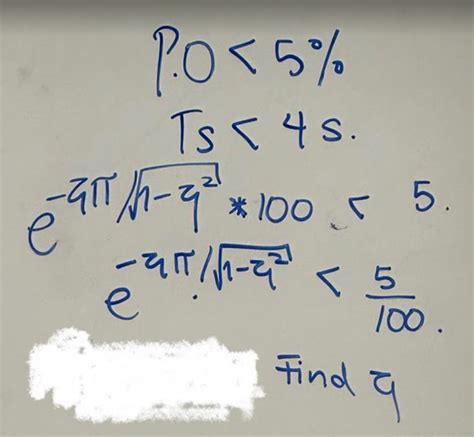 P.O < 5%
Ts < 4 s.
e^-ζπ/√1-ζ² * 100 < 5.
e^-ζπ/√1-ζ² < 5/100.
Find ζ